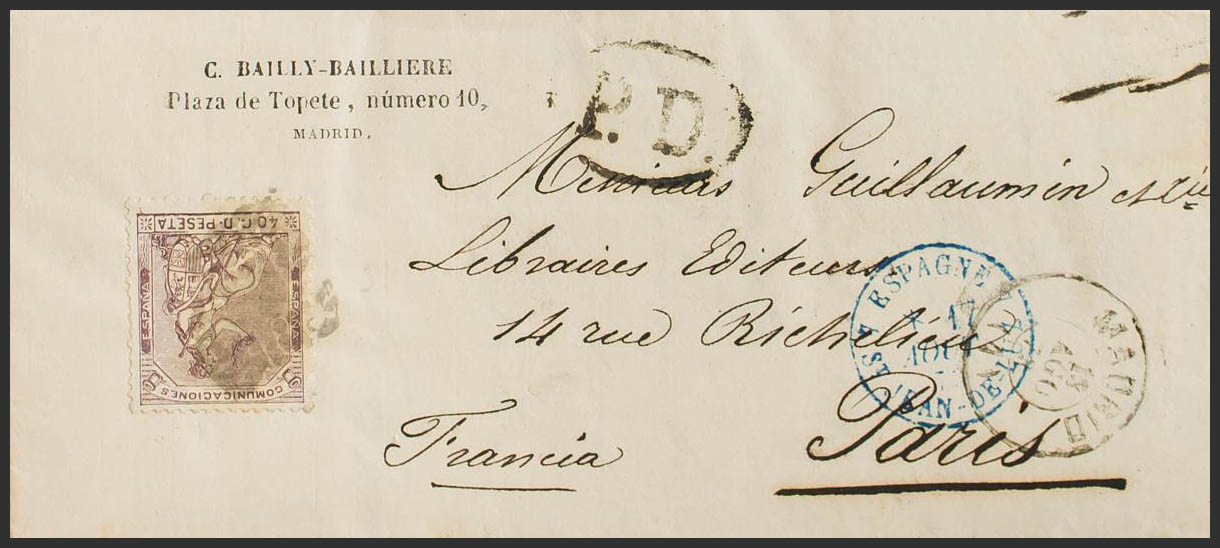 C. BAILLY-BAILLIERE
Plaza de Topete, número 10,
MADRID.
P.D.
Messieurs Guillaumin et Cie
Libraires Editeurs
14 rue Richelieu
Paris
Francia
COMUNICACIONES
ESPAÑA
ESPAÑA
40 C. D. PESETA
ESPAGNE
AOUT
ST JEAN-DE-LUZ
MADRID
AGO